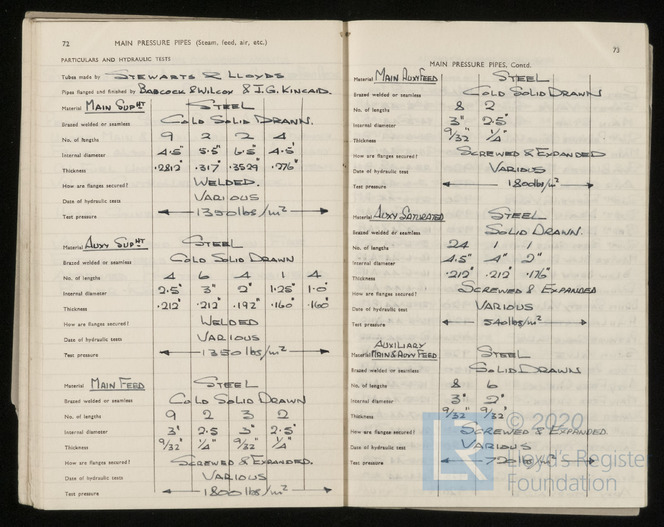 72
MAIN PRESSURE PIPES (Steam, feed, air, etc.)
PARTICULARS AND HYDRAULIC TESTS
Tubes made by STEWARTS & LLOYDS
Pipes flanged and finished by BABCOCK & WILCOX & J.G. KINCAID.
Material MAIN SUPHT STEEL
Brazed welded or seamless COLD SOLID DRAWN.
No. of lengths 9 2 2 4
Internal diameter 4.5" 5.5" 6.5" 4.5"
Thickness .2812" .317" .3529" .276"
How are flanges secured? WELDED.
Date of hydraulic tests VARIOUS
Test pressure 1350 lbs/in²
Material AUXY SUPHT STEEL
Brazed welded or seamless COLD SOLID DRAWN
No. of lengths 4 6 4 1 4
Internal diameter 2.5" 3" 2" 1.25" 1.0"
Thickness .212" .212" .192" .160" .160"
How are flanges secured? WELDED
Date of hydraulic tests VARIOUS
Test pressure 1350 lbs/in²
Material MAIN FEED STEEL
Brazed welded or seamless COLD SOLID DRAWN
No. of lengths 9 2 3 2
Internal diameter 3" 2.5" 3" 2.5"
Thickness 9/32" 1/4" 9/32" 1/4"
How are flanges secured? SCREWED & EXPANDED.
Date of hydraulic tests VARIOUS
Test pressure 1800 lbs/in²
73
MAIN PRESSURE PIPES, Contd.
Material MAIN AUXY FEED STEEL
Brazed welded or seamless COLD SOLID DRAWN
No. of lengths 8 2
Internal diameter 3" 2.5"
Thickness 9/32" 1/4"
How are flanges secured? SCREWED & EXPANDED
Date of hydraulic tests VARIOUS
Test pressure 1800 lbs/in²
Material AUXY SATURATED STEEL
Brazed welded or seamless SOLID DRAWN.
No. of lengths 24 1 1
Internal diameter 4.5" 4" 2"
Thickness .212" .212" .176"
How are flanges secured? SCREWED & EXPANDED
Date of hydraulic tests VARIOUS
Test pressure 540 lbs/in²
AUXILIARY
Material MAIN & AUXY FEED STEEL
Brazed welded or seamless SOLID DRAWN
No. of lengths 8 6
Internal diameter 3" 2"
Thickness 9/32" 9/32"
How are flanges secured? SCREWED & EXPANDED
Date of hydraulic tests VARIOUS
Test pressure 720 lbs/in²
© 2020
Lloyd's Register
Foundation